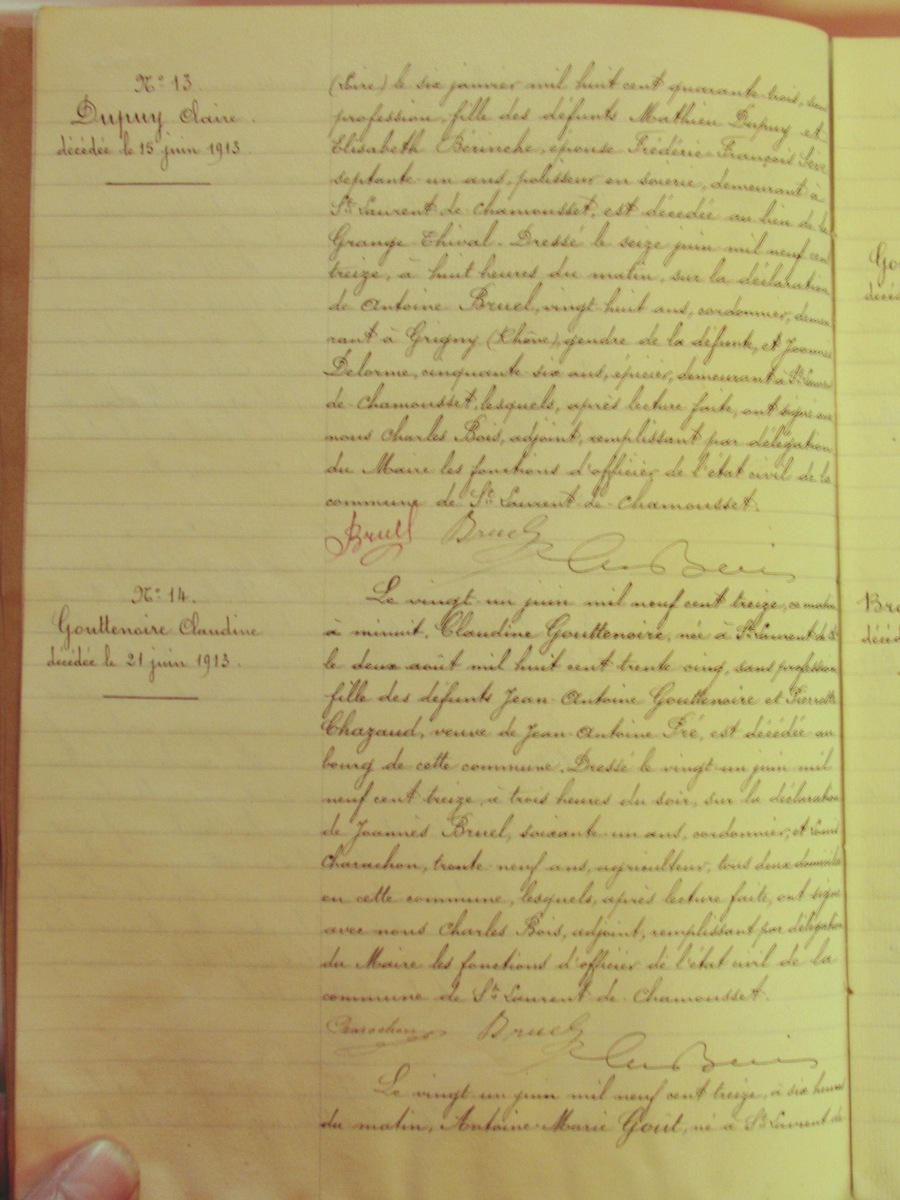 N° 13.
Dupuy Claire.
décédée le 15 juin 1913
(Loire) le six janvier mil huit cent quarante-trois, sans
profession, fille des défunts Mathieu Dupuy et
Elisabeth Bérinche, épouse Frédéric-François Sève
septante-un ans, polisseur en soierie, demeurant à
St Laurent de Chamousset, est décédée au lieu de la
Grange Thival. Dressé le seize juin mil neuf cent
treize, à huit heures du matin, sur la déclaration
de Antoine Bruel, vingt huit ans, cordonnier, demeu
rant à Grigny (Rhône), gendre de la défunte, et Joannès
Delorme, cinquante-six ans, épicier, demeurant à St Laurent
de-Chamousset, lesquels, après lecture faite, ont signé avec
nous Charles Bois, adjoint, remplissant par délégation
du Maire les fonctions d'officier de l'état civil de la
commune de St Laurent-de-Chamousset.
Bruel Bruel Ch Bois
N° 14.
Gouttenoire Claudine
décédée le 21 juin 1913.
Le vingt un juin mil neuf cent treize, ce matin
à minuit, Claudine Gouttenoire, née à St Laurent de Ch
le deux août mil huit cent trente cinq, sans profession
fille des défunts Jean-Antoine Gouttenoire et Pierrette
Chazaud, veuve de Jean-Antoine Fré, est décédée au
bourg de cette commune. Dressé le vingt-un juin mil
neuf cent treize, à trois heures du soir, sur la déclaration
de Joannès Bruel, soixante-un ans, cordonnier, et Louis
Charachon, trente-neuf ans, agriculteur, tous deux domiciliés
en cette commune, lesquels, après lecture faite, ont signé
avec nous Charles Bois, adjoint, remplissant par délégation
du Maire les fonctions d'officier de l'état civil de la
commune de St Laurent-de-Chamousset.
Charachon Bruel Ch Bois
Le vingt un juin mil neuf cent treize, à six heures
du matin, Antoine-Marie Gout, né à St Laurent de